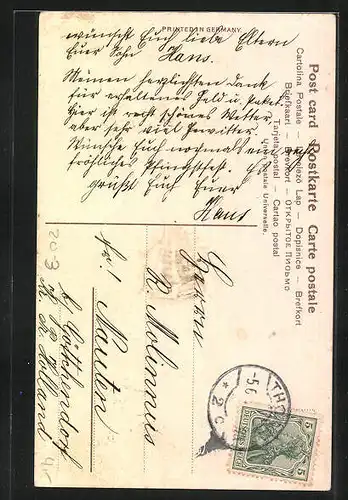 PRINTED IN GERMANY
wünscht Euch liebe Eltern
Euer Sohn Hans.
Meinen herzlichsten Dank
für erhaltenes Geld u. Paket.
Hier ist recht schönes Wetter
aber sehr viel Gewitter.
Wünsche Euch nochmals ein recht
fröhliches Pfingstfest. Es
grüßt Euch Euer
Hans
Post card Postkarte Carte postale
Cartolina Postale – Levelező Lap – Dopisnice – Brefkort
Briefkaart – Brevkort – ОТКРЫТОЕ ПИСЬМО
Tarjeta postal – Cartao postal
Union Postale Universelle.
Herrn
R. Molinnis
Nauten
b. Göttchendorf
Kr. Pr. Holland
203
THO
5.6
* 2 c
5
5